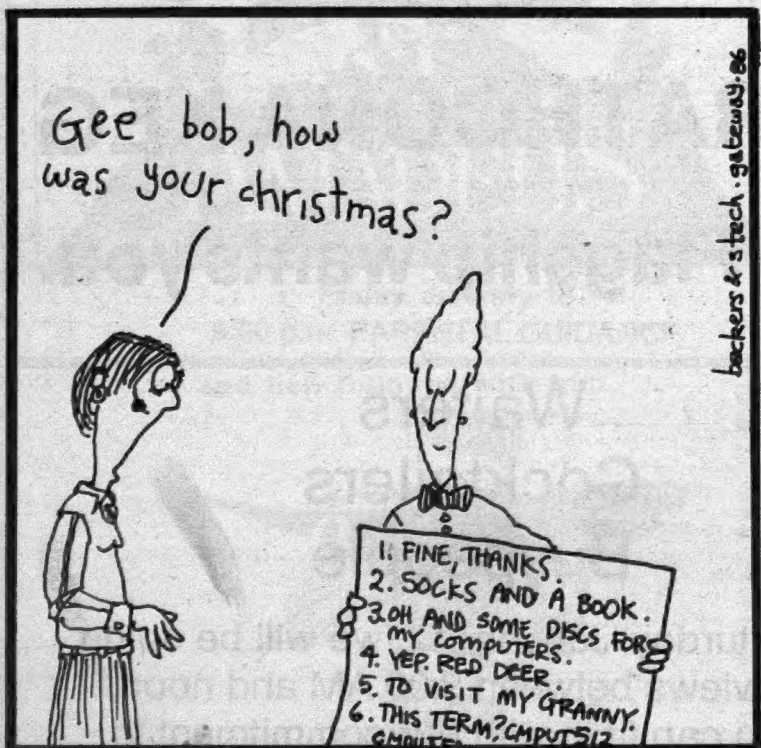 Gee bob, how
was your christmas?
beckers & stech . gateway . 86
1. FINE, THANKS.
2. SOCKS AND A BOOK.
3. OH AND SOME DISCS FOR
MY COMPUTERS.
4. YEP. RED DEER.
5. TO VISIT MY GRANNY.
6. THIS TERM? CMPUT 512
Waiters
Cocktailers